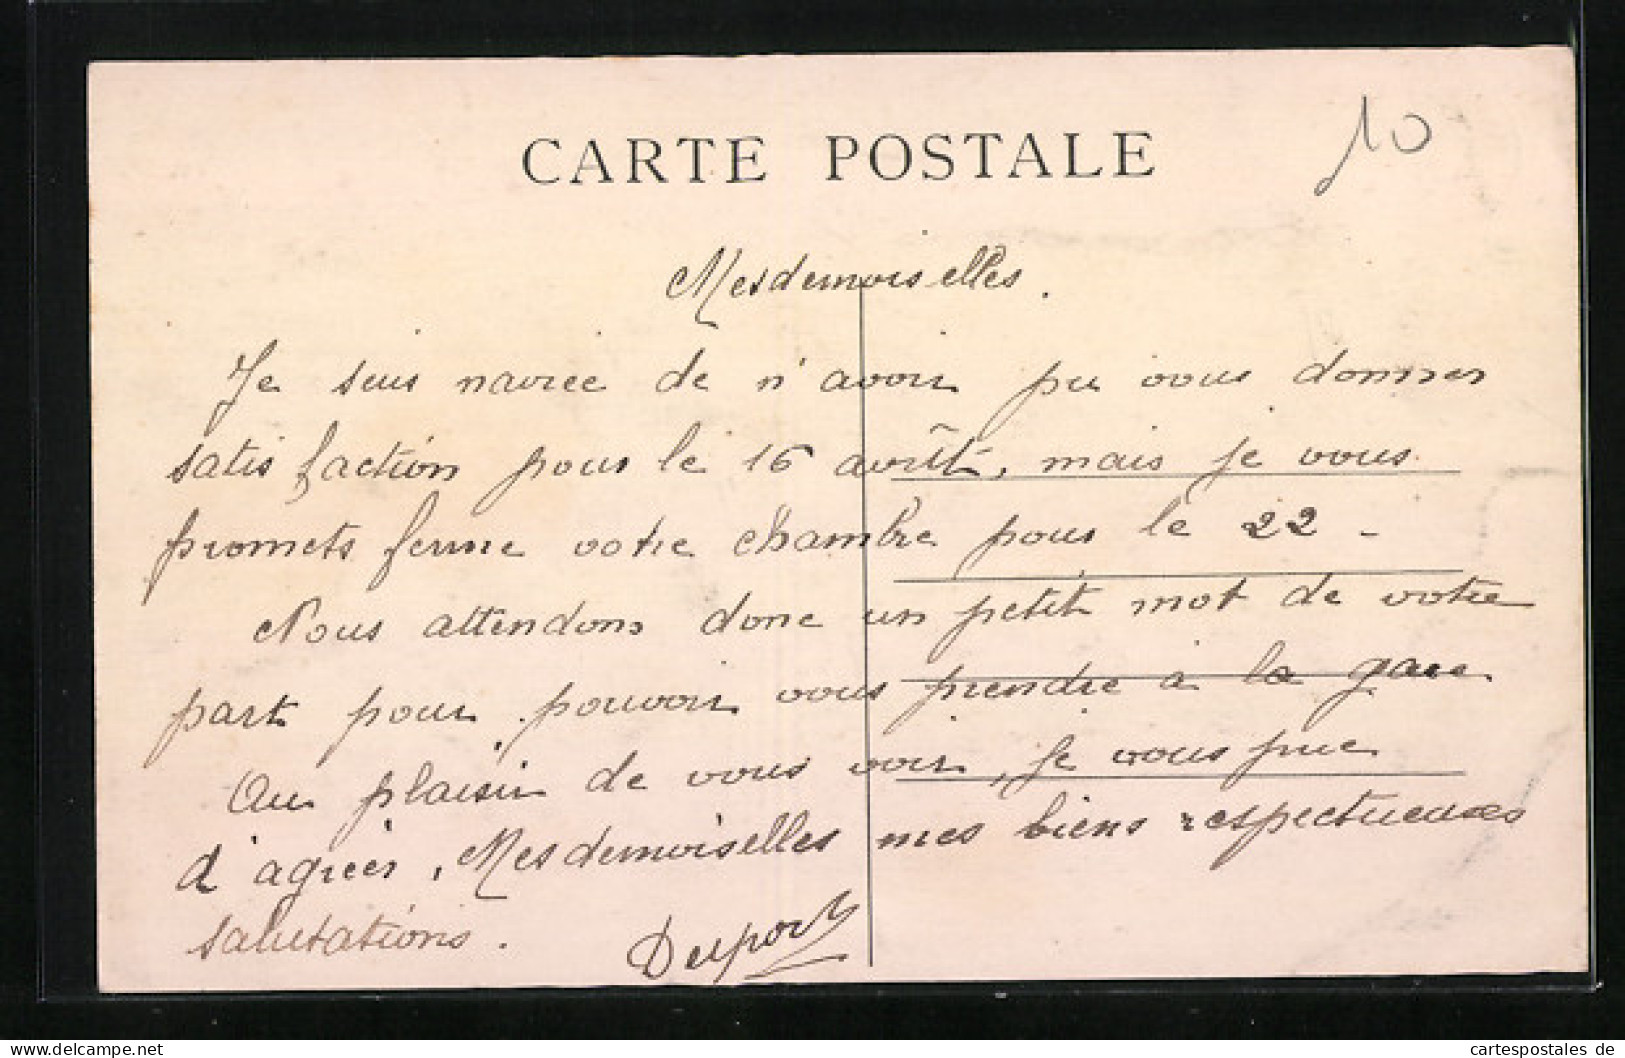 CARTE POSTALE
10
Mesdemoiselles.
Je suis navrée de n'avoir pu vous donner
satisfaction pour le 16 août, mais je vous
promets ferme votre chambre pour le 22 -
Nous attendons donc un petit mot de votre
part pour pouvoir vous prendre à la gare
Au plaisir de vous voir, je vous prie
d'agréer, Mesdemoiselles mes biens respectueuses
salutations.
www.cartespostales.com
cartespostales de